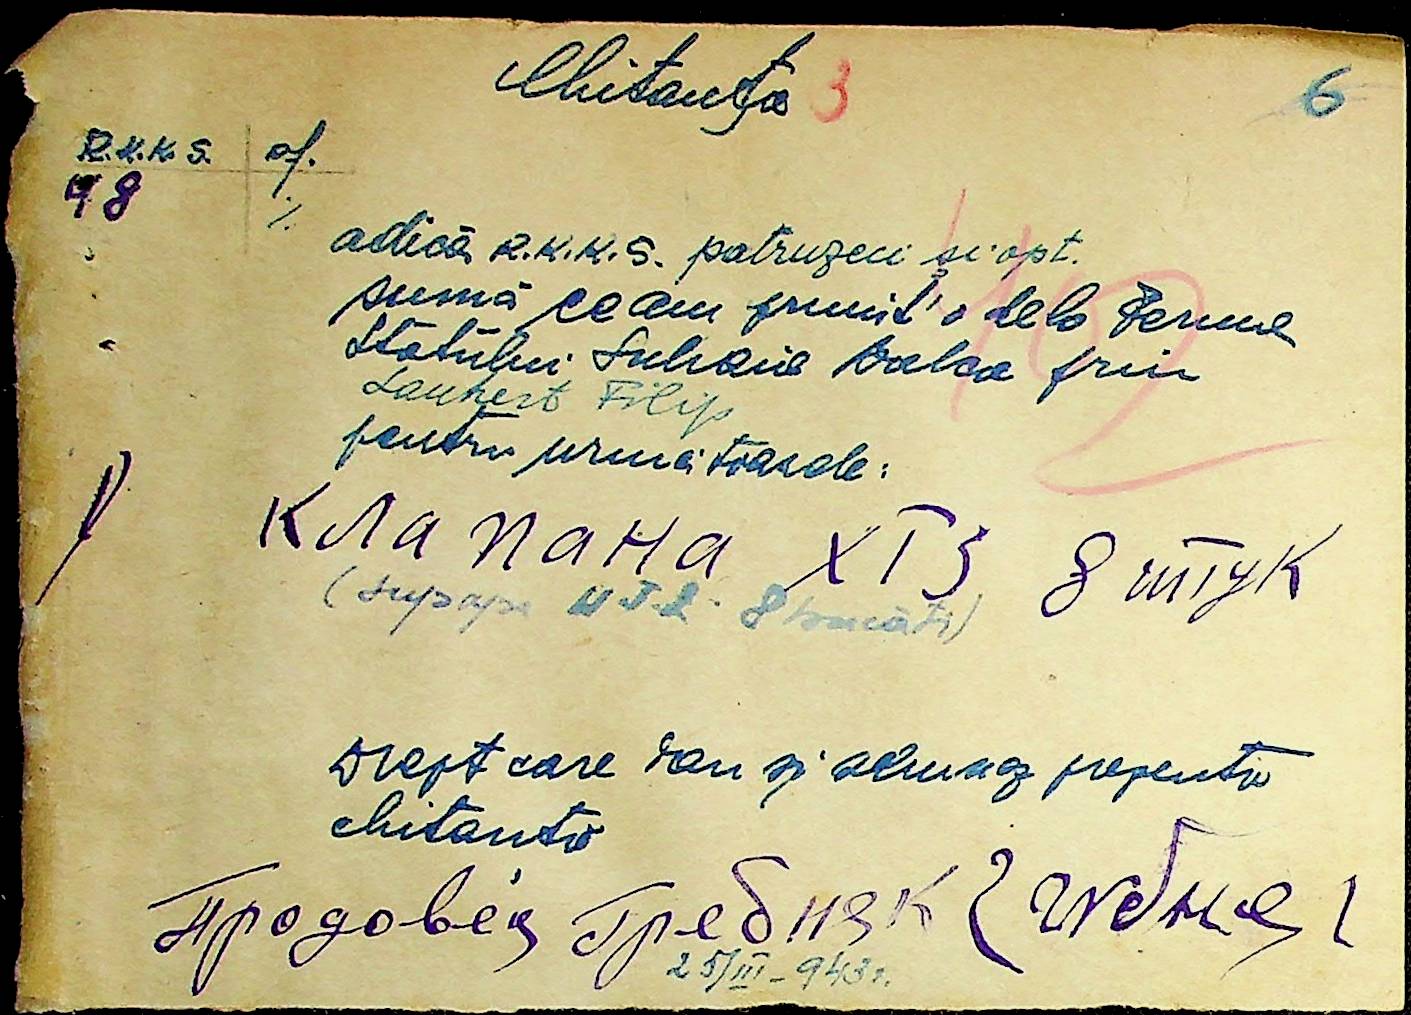 Chitanţa 3
6
R.K.K.S. of.
48 %
adică R.K.K.S. patruzeci şi opt.
sumă ce am primit'o dela Ferma
Statului Suhaia Balca prin
Lambert Filip
pentru următoarele:
10
Клапана ХТЗ 8 штук
(supape H.T.Z. 8 bucăţi)
Drept care dau şi semnez prezenta
chitanta
Продовец Гребняк
25/III-943 г.